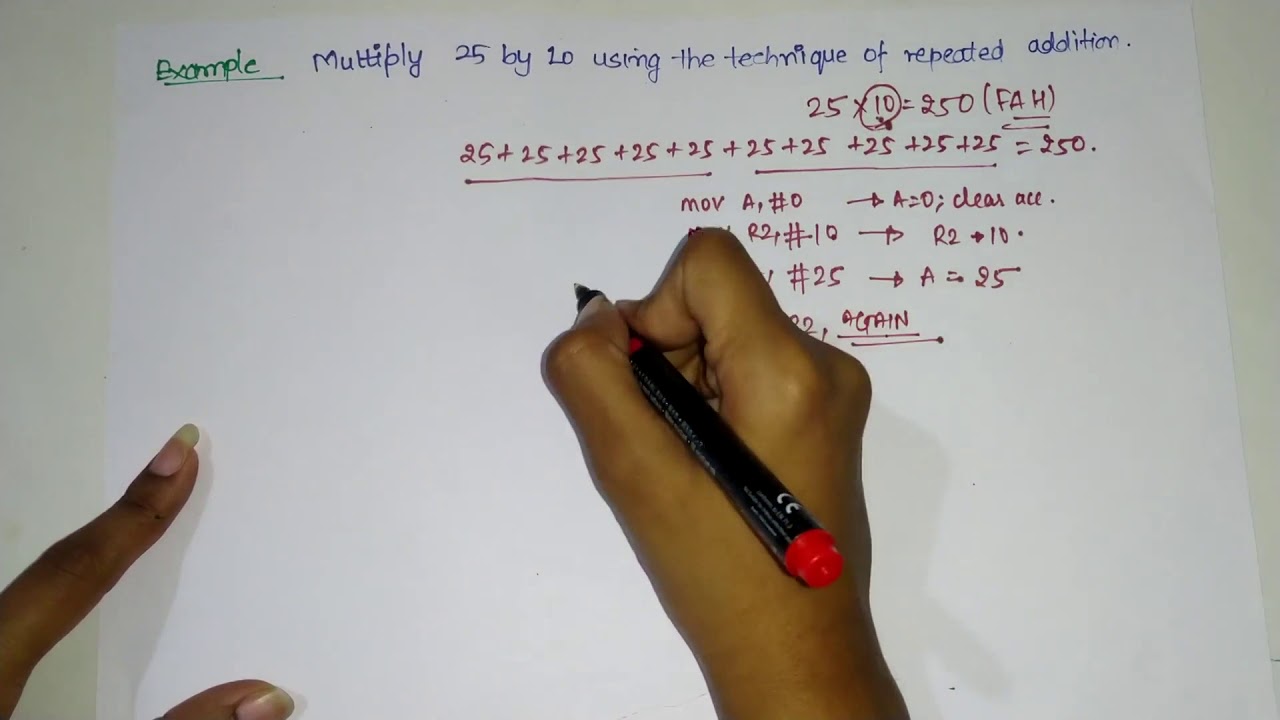 Example Multiply 25 by 10 using the technique of repeated addition.
25 × 10 = 250 (FAH)
25 + 25 + 25 + 25 + 25 + 25 + 25 + 25 + 25 + 25 = 250.
mov A, #0 → A=0; clear acc.
R2, #10 → R2 → 10.
#25 → A = 25
R2, AGAIN
CE